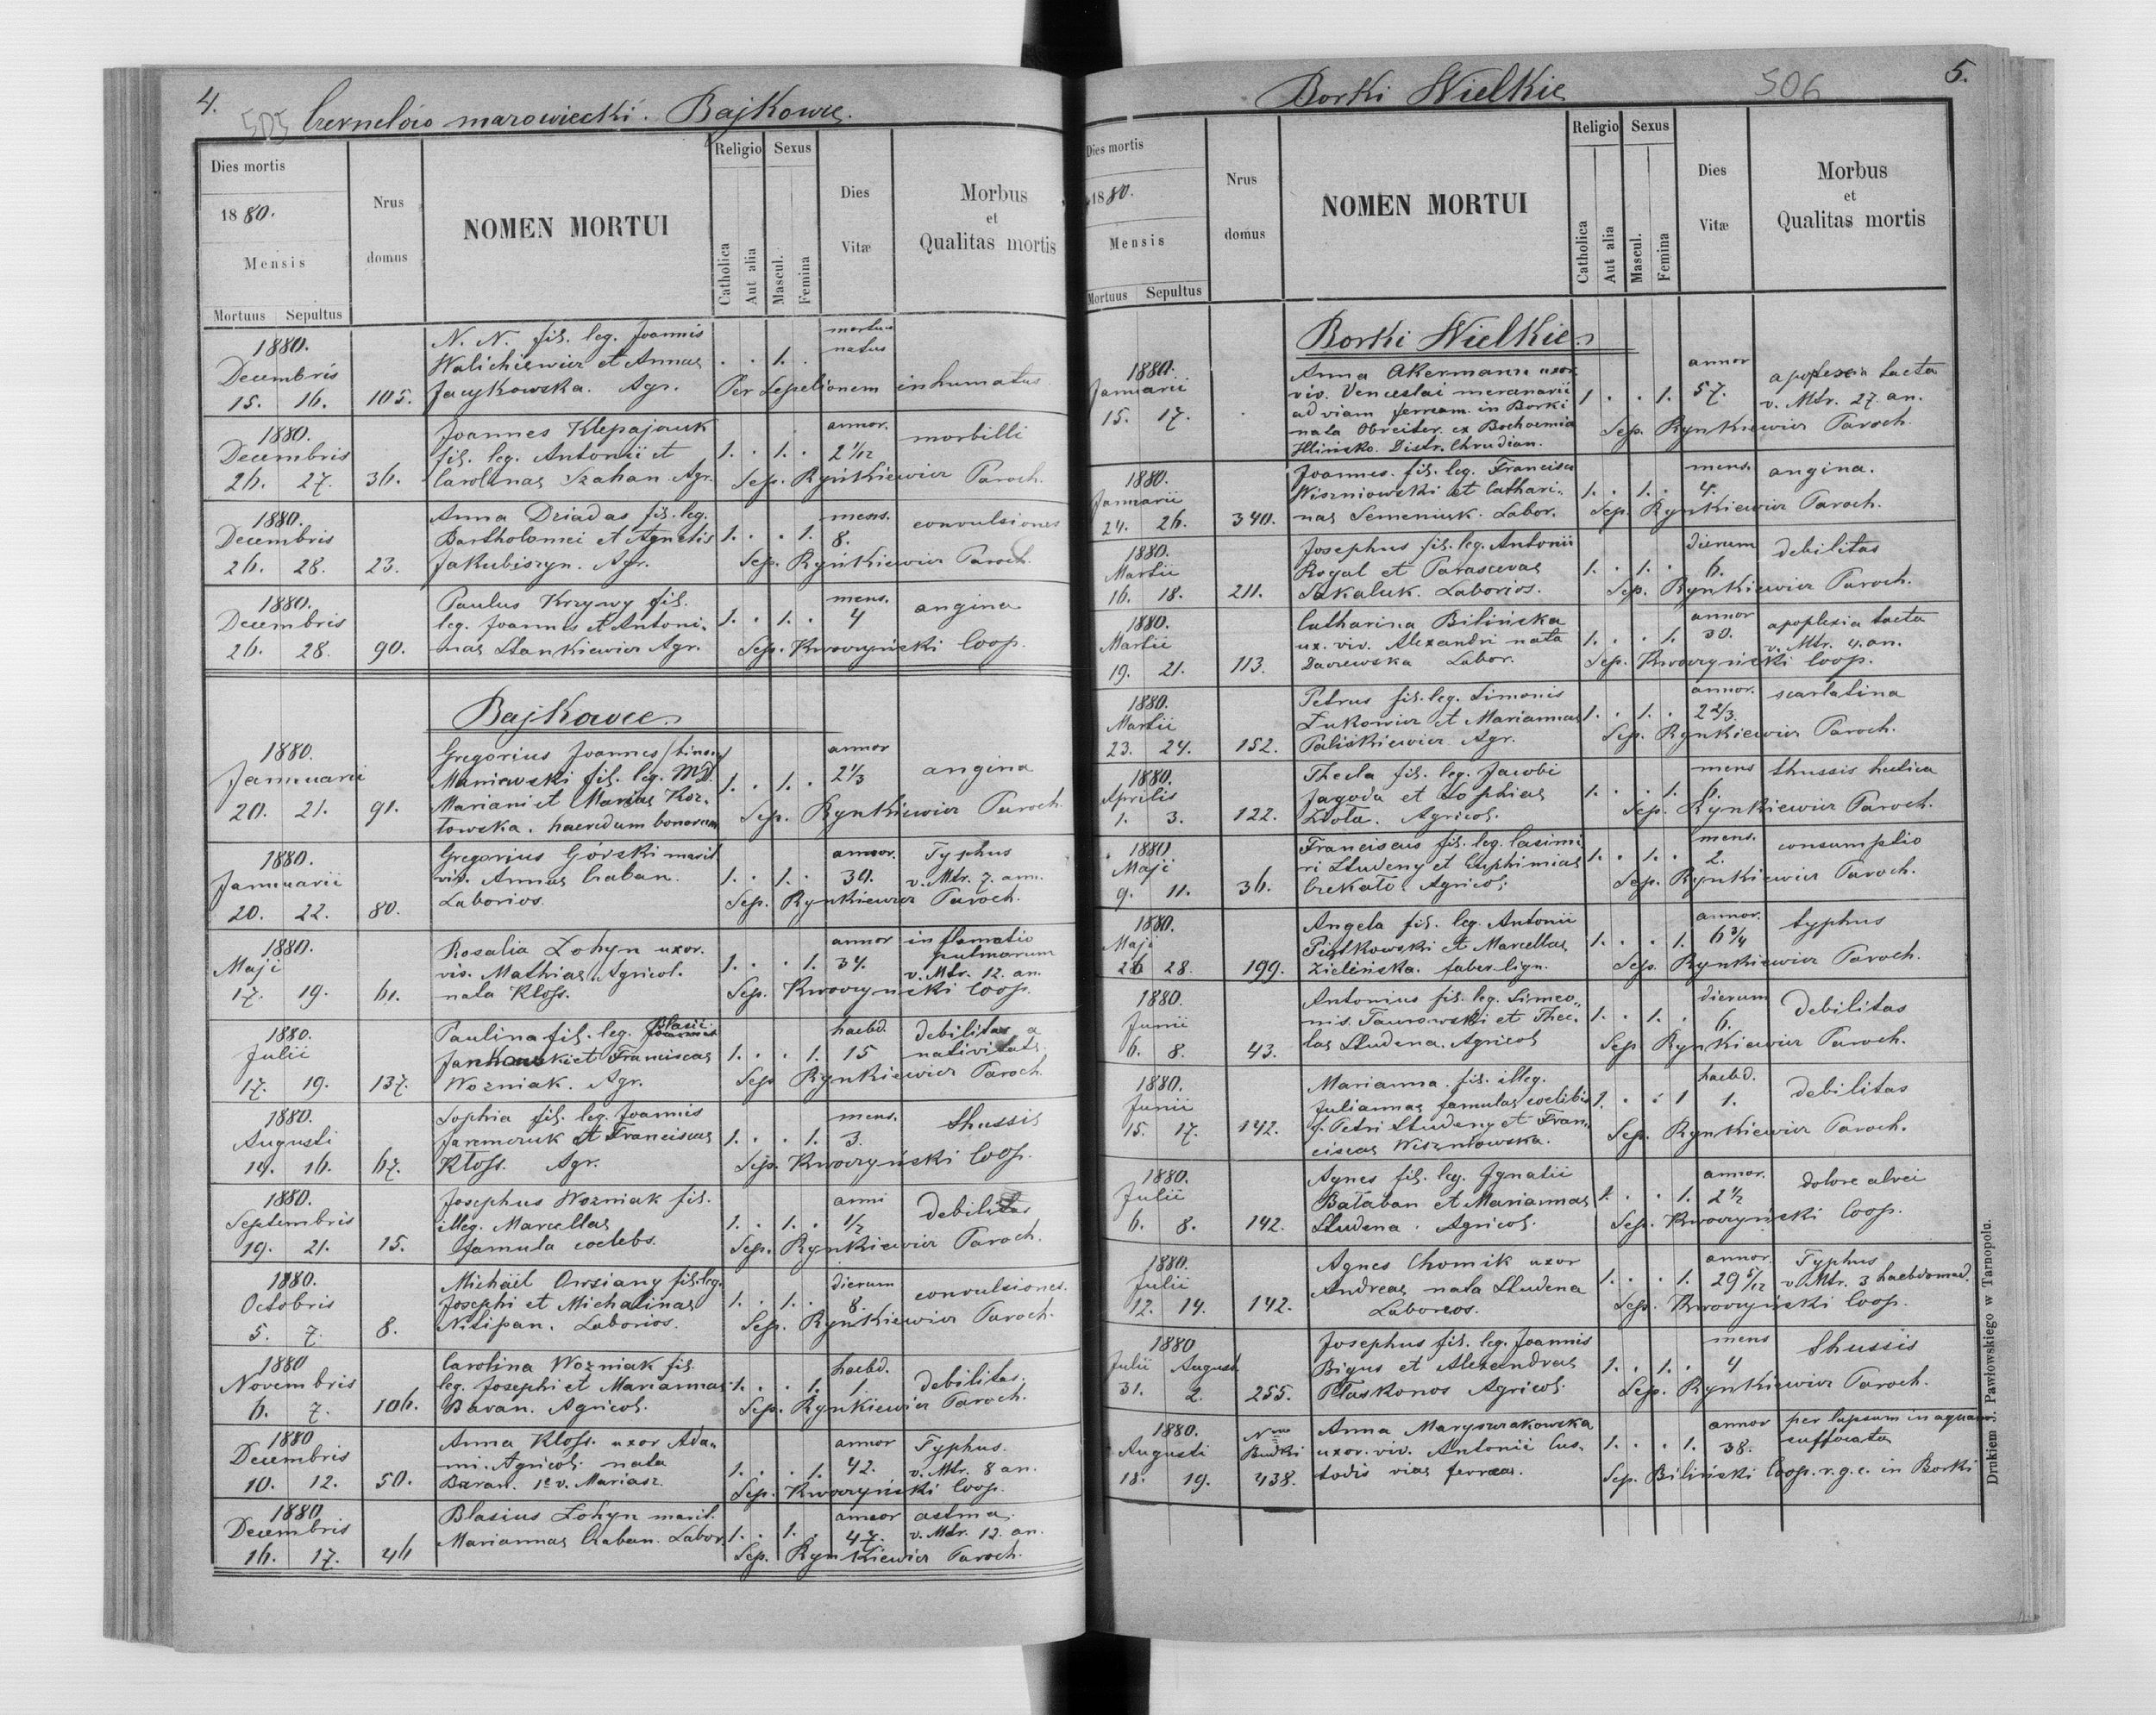 4.
505 Czernelów mazowiecki. Bajkowce.
Dies mortis
1880.
Mensis
Mortuus Sepultus
Nrus domus
NOMEN MORTUI
Religio
Catholica
Aut alia
Sexus
Mascul.
Femina
Dies Vitæ
Morbus et Qualitas mortis
1880. N. N. fil. leg. Joannis mortuo
Decembris Walichiewicz et Annae . . 1. . natus
15. 16. 105. Jacykowska. Agr. Per Lepelionem inhumatus
1880. Joannes Klepajczuk annor. morbilli
Decembris fil. leg. Antonii et 1. . 1. . 2 1/12
26. 27. 36. Carolinae Szahan Agr. Sep. Rynkiewicz Paroch.
1880. Anna Dziadas fil. leg. mens. convulsiones
Decembris Bartholomei et Agnetis 1. . . 1. 8.
26. 28. 23. Jakubiszyn. Agr. Sep. Rynkiewicz Paroch.
1880. Paulus Krzywy fil. mens. angina
Decembris leg. Joannis et Antoni- 1. . 1. . 4
26. 28. 90. nae Stankiewicz Agr. Sep. Kwoczyński Coop.
Bajkowce
1880. Gregorius Joannes /binom/ annor
Januarii Maniewski fil. leg. MgD. 1. . 1. . 2 1/3 angina
20. 21. 91. Mariani et Mariae Koz-
towska. haeredum bonorum Sep. Rynkiewicz Paroch.
1880. Gregorius Górski marit. annor. Typhus
Januarii viv. Annae Czaban. 1. . 1. . 39. v. Mtr. 7. ann.
20. 22. 80. Laborios. Sep. Rynkiewicz Paroch.
1880. Rosalia Zohyn uxor. annor inflamatio
Maji viv. Mathiae Agricol. 1. . . 1. 34. pulmorum v. Mtr. 12. an.
17. 19. 61. nata Kloss. Sep. Kwoczyński Coop.
1880. Paulina fil. leg. Blasii haebd. debilitas a
Julii Jankowski et Franciscae 1. . . 1. 15 nativitate.
17. 19. 137. Wozniak. Agr. Sep. Rynkiewicz Paroch.
1880. Sophia fil. leg. Joannis mens. thussis
Augusti Jaremczuk et Franciscae 1. . . 1. 3.
14. 16. 67. Kloss. Agr. Sep. Kwoczyński Coop.
1880. Josephus Wozniak fil. anni debilitas
Septembris illeg. Marcellae 1. . 1. . 1/2
19. 21. 15. famula coelebs. Sep. Rynkiewicz Paroch.
1880. Michäel Owsiany fil. leg. dierum convulsiones.
Octobris Josephi et Michalinae 1. . 1. . 8.
5. 7. 8. Nitipan. Laborios. Sep. Rynkiewicz Paroch.
1880 Carolina Wozniak fil. haebd. debilitas.
Novembris leg. Josephi et Mariannae 1. . . 1. 1
6. 7. 106. Baran. Agricol. Sep. Rynkiewicz Paroch.
1880 Anna Kloss. uxor Ada- annor Typhus.
Decembris mi. Agricol. nata 1. . . 1. 42. v. Mtr. 8 an.
10. 12. 50. Baran. 1º v. Mariasz. Sep. Kwoczyński Coop.
1880 Blasius Zohyn marit. annor astma.
Decembris Mariannae Czaban. Labor. 1. . 1. . 47. v. Mtr. 12. an.
16. 17. 46 Sep. Rynkiewicz Paroch.
Borki Wielkie 506 5.
Dies mortis
1880.
Mensis
Mortuus Sepultus
Nrus domus
NOMEN MORTUI
Religio
Catholica
Aut alia
Sexus
Mascul.
Femina
Dies Vitæ
Morbus et Qualitas mortis
Borki Wielkie
1880. Anna Akermann uxor annor apoplexia tacta
Januarii viv. Venceslai mercnarii 1 . . 1. 57. v. Mtr. 27. an.
15. 17. . ad viam ferream in Borki
nata Obreiter. ex Bochoemia Sep. Rynkiewicz Paroch.
Hlinsko. Distr. Chrudian.
1880. Joannes. fil. leg. Francisci mens. angina.
Januarii Wiszniowski et Cathari- 1. . 1. . 4.
24. 26. 340. nae Semeniuk. Labor. Sep. Rynkiewicz Paroch.
1880. Josephus fil. leg. Antonii dierum debilitas
Martii Rogal et Parascevae 1. . 1. . 6.
16. 18. 211. Sakaluk. Laborios. Sep. Rynkiewicz Paroch.
1880. Catharina Bilińska annor apoplexia tacta
Martii ux. viv. Alexandri nata 1. . . 1. 30. v. Mtr. 4. an.
19. 21. 113. Daczewska Labor. Sep. Kwoczyński Coop.
1880. Petrus fil. leg. Simonis annor. scarlatina
Martii Zukowicz et Mariannae 1. . 1. . 2 2/3.
23. 24. 152. Paliskiewicz Agr. Sep. Rynkiewicz Paroch.
1880. Thecla fil. leg. Jacobi mens thussis hectica
Aprilis Jagoda et Sophiae 1. . . 1.
1. 3. 122. Złota. Agricol. Sep. Rynkiewicz Paroch.
1880 Franciscus fil. leg. Casimi mens. consumptio
Maji ri Studeny et Euphimiae 1. . 1. . 2.
9. 11. 36. Czekało. Agricol. Sep. Rynkiewicz Paroch.
1880. Angela fil. leg. Antonii annor. typhus
Maji Piątkowski et Marcellae 1. . . 1. 6 3/4
26 28. 199. Zielińska. faber lign. Sep. Rynkiewicz Paroch.
1880. Antonius fil. leg. Simeo- dierum debilitas
Junii nis. Taurowski et Thec- 1. . 1. . 6.
6. 8. 43. lae Studena. Agricol Sep Rynkiewicz Paroch.
1880. Marianna. fil. illeg. haebd. debilitas
Junii Juliannae famulae coelibis 1. . . 1 1.
15. 17. 142. f. Petri Studeny et Fran-
ciscae Wiszniowska. Sep. Rynkiewicz Paroch.
1880. Agnes fil. leg. Ignatii annor. dolore alvei
Julii Bałaban et Mariannae 1. . . 1. 2 1/2
6. 8. 142. Studena. Agricol. Sep. Kwoczyński Coop.
1880. Agnes Chomik uxor annor. Typhus
Julii Andreae nata Studena 1. . . 1. 29 5/12 v. Mtr. 3 haebdomad.
12. 14. 142. Laborios. Sep. Kwoczyński Coop.
1880 Josephus fil. leg. Joannis mens thussis
Julii Augusti Bigus et Alexandrae 1. . 1. . 4
31. 2. 255. Płaskonos Agricol. Sep. Rynkiewicz Paroch.
1880. Nro Anna Maryszrakowska annor per lapsum in aquam
Augusti Budki uxor. viv. Antonii Cus- 1. . . 1. 38. suffocata
18. 19. 438. todis viae ferreae. Sep. Biliński Coop. r. g. c. in Borki
Drukiem J. Pawłowskiego w Tarnopolu.